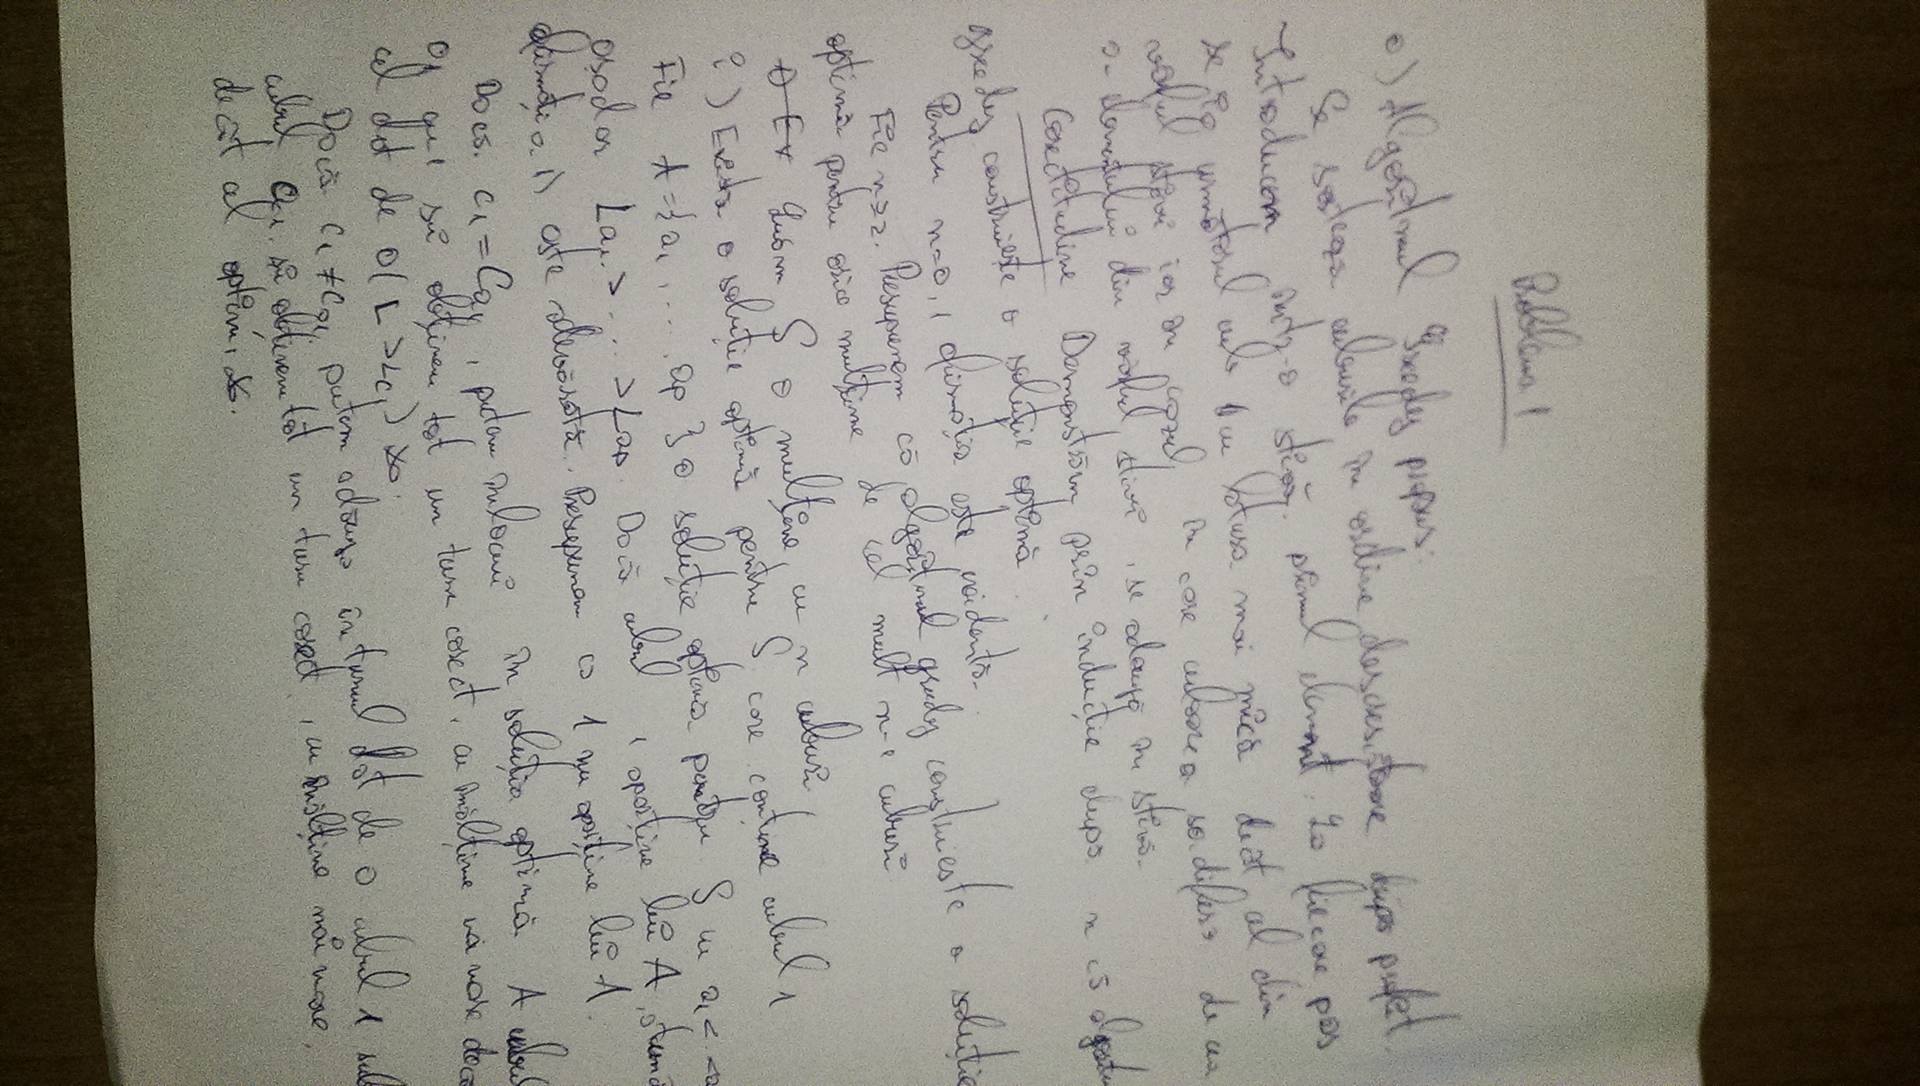 Problema 1
a) Algoritmul Greedy propus:
Se sortează cuburile în ordine descrescătoare după
Introducem într-o stivă primul element. La fiecare pas
se ia următorul cub cu latura mai mică decât al din
vârful stivei iar în cazul în care culoarea sa diferă de cea
a elementului din vârful stivei, se adaugă în stivă.
Corectitudine Demonstrăm prin inducție după n că
greedy construiește o soluție optimă.
Pentru n=0,1 afirmația este evidentă.
Fie n≥2. Presupunem că algoritmul greedy construiește o soluție
optimă pentru orice mulțime de cel mult n-1 cuburi
Luăm S o mulțime cu n cuburi
i) Exista o soluție optimă pentru S care contine cubul 1
Fie A={a1, .... ap } o soluție optimă pentru S cu a1<
așadar La1>....>Lap. Dacă cubul 1 aparține lui A,
afirmația i) este adevărată. Presupunem că 1 nu aparține lui A.
Dacă c1=Ca1, putem înlocui în soluția optimă A cubul
a1 cu 1 și obținem tot un turn corect, cu înălțime mai mare decât
cel dat de
Dacă c1≠ca1 putem adăuga în turnul dat de o cubul 1 sub
cubul a1 și obținem tot un turn corect, cu înălțime mai mare
decât al optim,